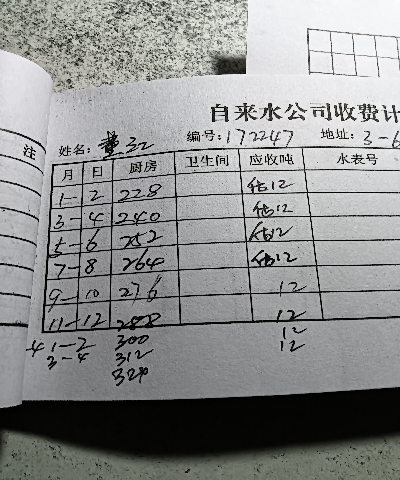 自来水公司收费计
注
姓名: 编号: 172247 地址: 3-6
月 日 厨房 卫生间 应收吨 水表号
1-2 228 估12
3-4 240 估12
5-6 252 估12
7-8 264 估12
9-10 276 12
11-12 288 12
4 1-2 300 12
3-4 312 12
324